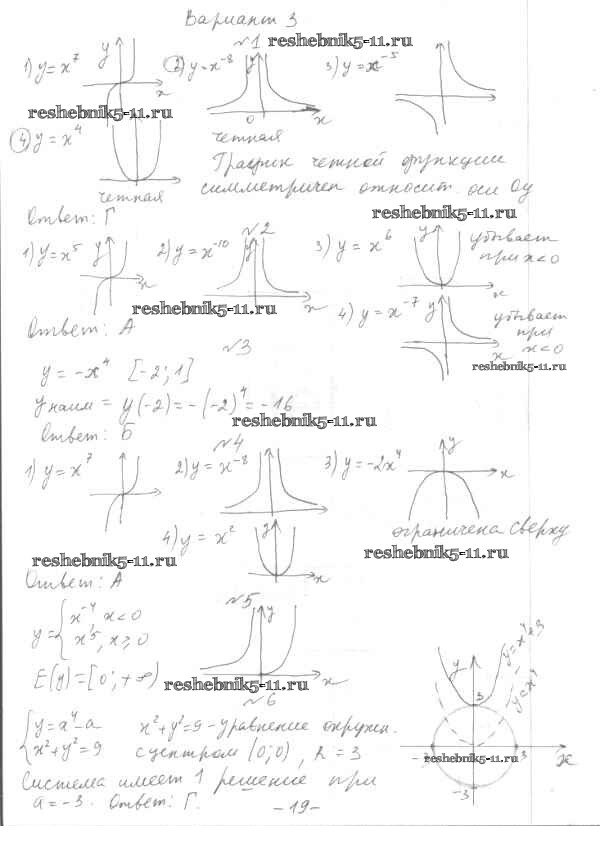 Вариант 3
№1
reshebnik5-11.ru
1) y = x⁷ y x
2) y = x⁻⁸ y 0 x
3) y = x⁻⁵
reshebnik5-11.ru
4) y = x⁴
четная
четная
График четной функции
симметричен относит. оси Oy
Ответ: Г
reshebnik5-11.ru
№2
1) y = x⁵ y
2) y = x⁻¹⁰ y x
3) y = x⁶ y x
убывает
при x<0
reshebnik5-11.ru
4) y = x⁻⁷ y x
убывает
при
x<0
Ответ: А
reshebnik5-11.ru
№3
y = -x⁴ [-2; 1]
y наим = y(-2) = -(-2)⁴ = -16
reshebnik5-11.ru
Ответ: Б
№4
1) y = x⁷
2) y = x⁻⁸
3) y = -2x⁴ y x
ограничена сверху
4) y = x² y x
reshebnik5-11.ru
reshebnik5-11.ru
Ответ: А
№5
y = { x⁻⁴, x<0
x⁵, x≥0
y x
E(y) = [0; +∞)
reshebnik5-11.ru
№6
{ y = x⁴-a
x²+y²=9
x²+y²=9 - уравнение окружн.
с центром (0;0), R = 3
Система имеет 1 решение при
a = -3. Ответ: Г.
y
y=x⁴+3
y=x⁴
3
-3
3
x
-3
reshebnik5-11.ru
-19-